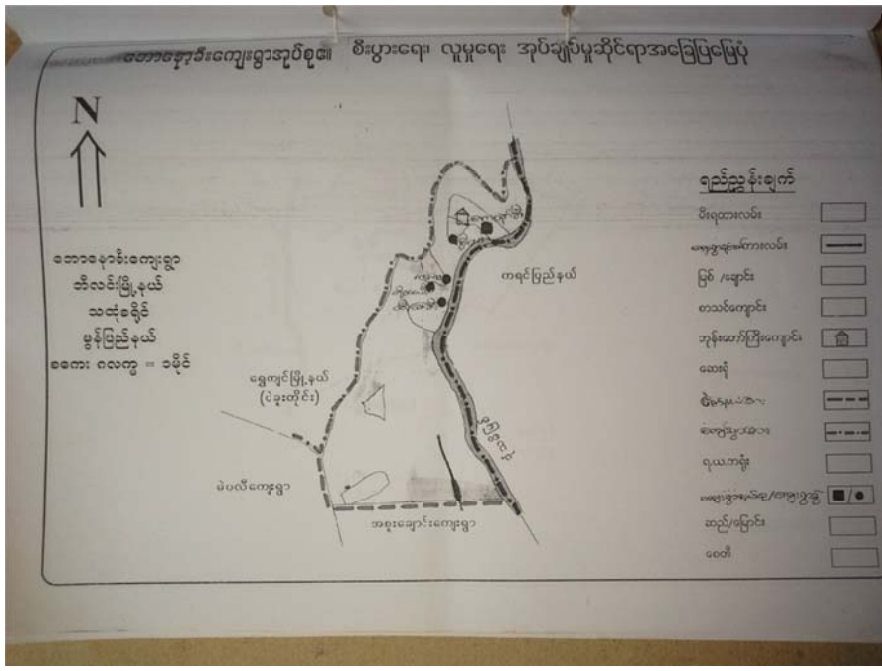 ဘောနော့ခီးကျေးရွာအုပ်စု၏ စီးပွားရေး၊ လူမှုရေး အုပ်ချုပ်မှုဆိုင်ရာအခြေပြမြေပုံ
N
ဘောနော့ခီးကျေးရွာ
ဘီလင်းမြို့နယ်
သထုံခရိုင်
မွန်ပြည်နယ်
စကေး ၁လက္မ = ၁မိုင်
ကရင်ပြည်နယ်
ရွှေကျင်မြို့နယ်
(ပဲခူးတိုင်း)
မဲပလီကျေးရွာ
အစူးချောင်းကျေးရွာ
ရည်ညွှန်းချက်
မီးရထားလမ်း
မြစ် /ချောင်း
စာသင်ကျောင်း
ဘုန်းတော်ကြီးကျောင်း
ဆေးရုံ
ရ.ယ.က ရုံး
ဆည်/မြောင်း
စေတီ